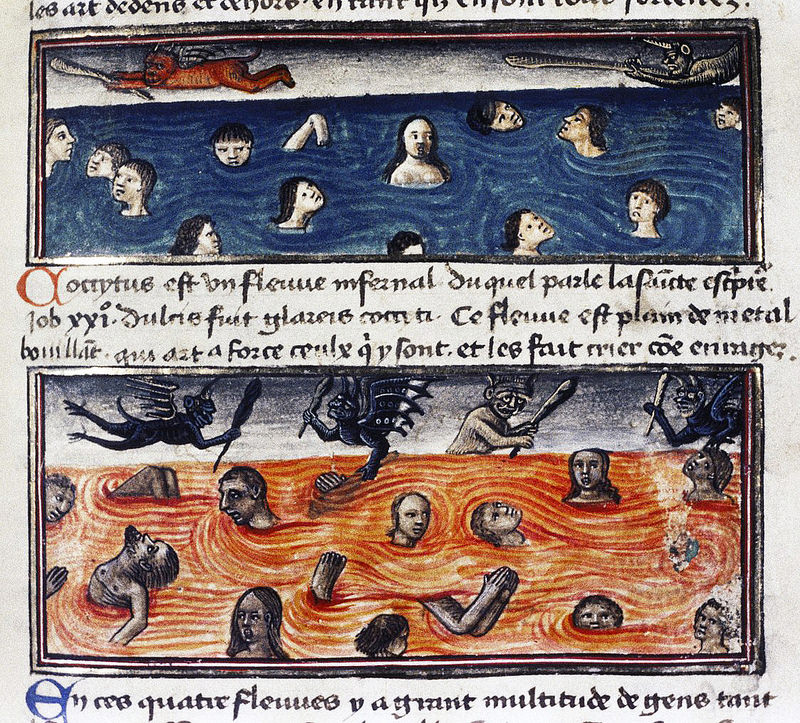 les art dedens et dehors . en tant qͥ en sont tout forcenez .
Cocytus est vn fleuve infernal duquel parle la saīcte esc̾ptͬe
Job xxiº . dulcis fuit glareis cocciti . Ce fleuve est plain de metal
bouillāt . qui art a force ceulx q̄ y sont . et les fait crier cōe enragez .
En ces quatre fleuves y a grant multitude de gens tant